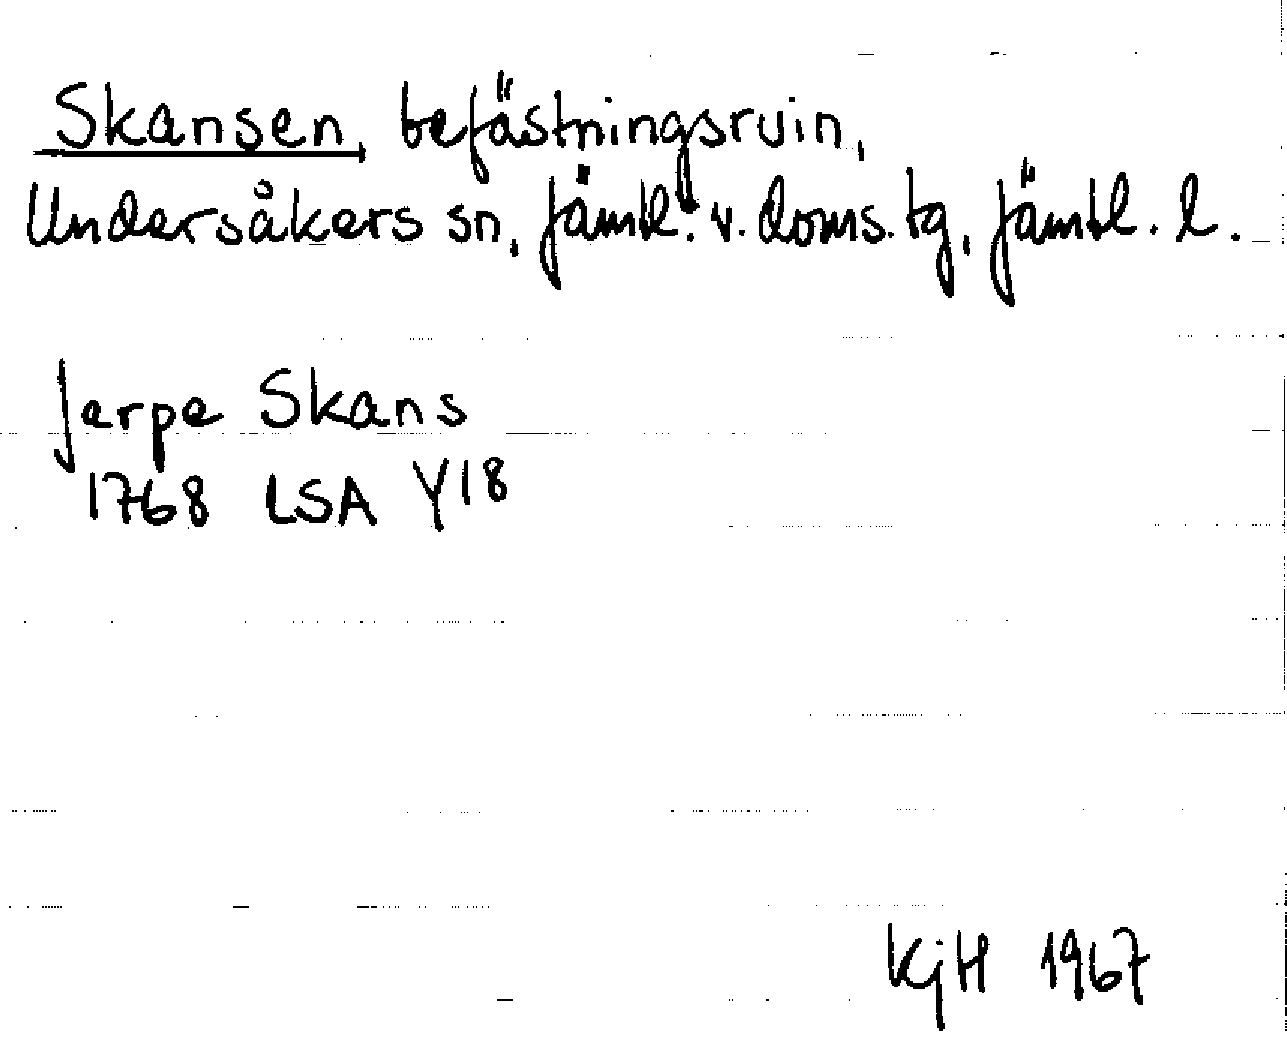 Skansen, befästningsruin,
Undersåkers sn, Jämtl. v. doms. tg, Jämtl. l.
Jerpe Skans
1768 LSA Y18
KjH 1967